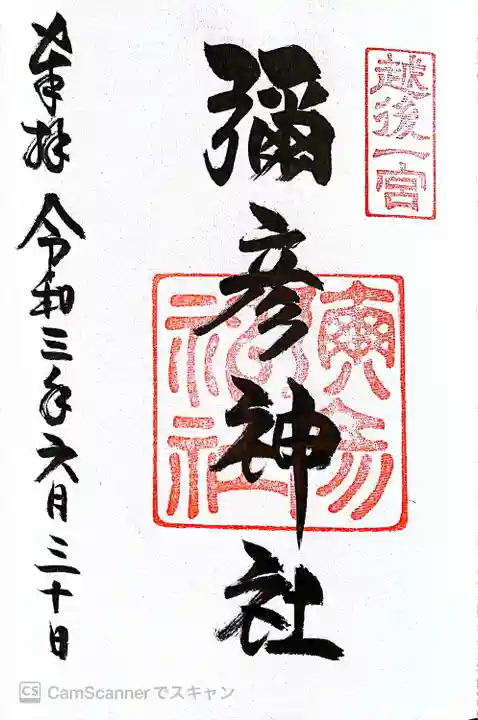 越後一宮
彌彦神社
奉拝 令和三年六月三十日
CamScannerでスキャン